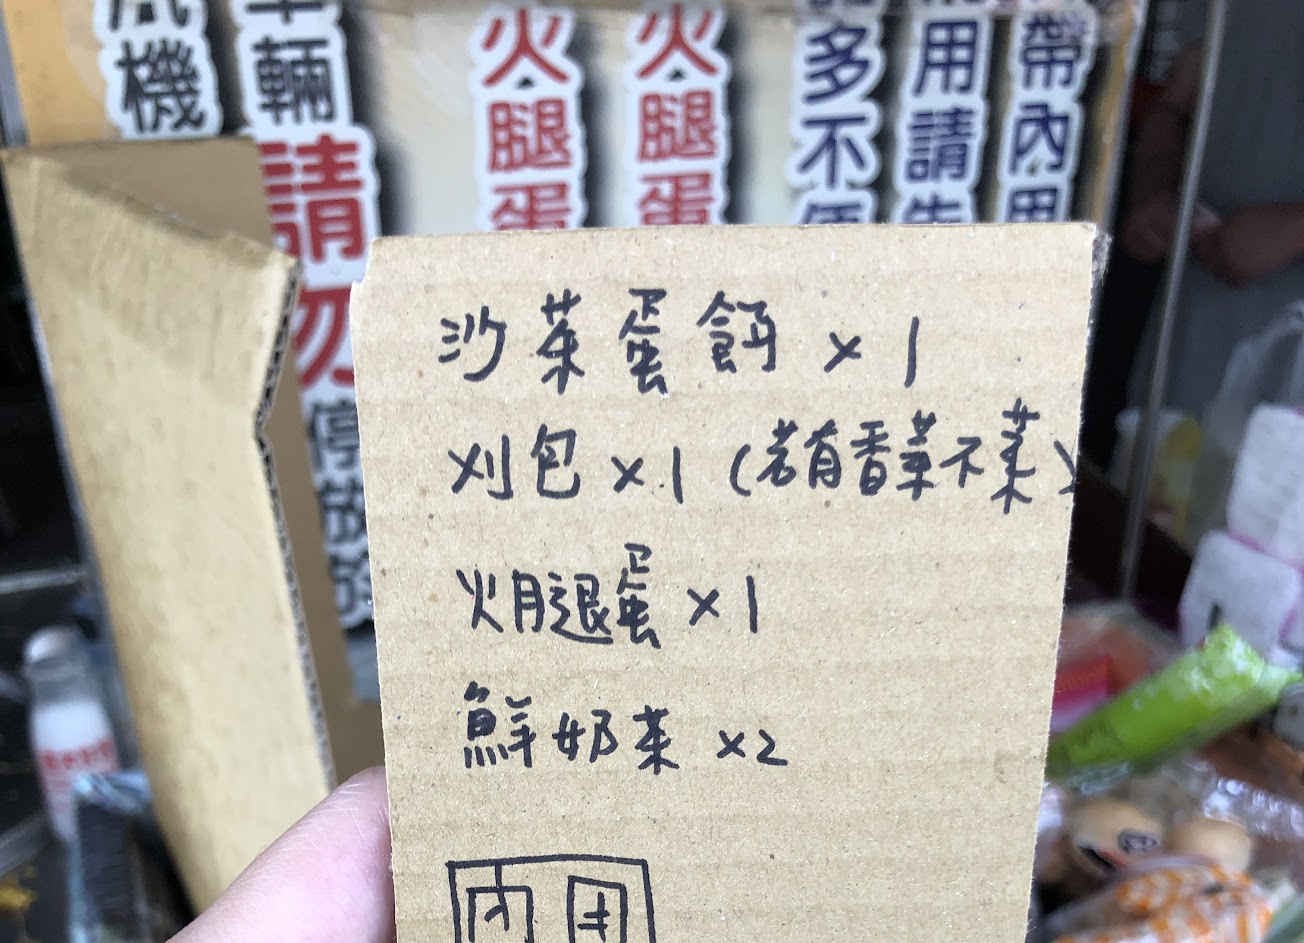 帶內用
用請告
多不便
火腿蛋
火腿蛋
車輛請勿停放於
機
沙茶蛋餅 x 1
刈包 x 1 (若有香菜不菜)
火腿蛋 x 1
鮮奶茶 x2
內用